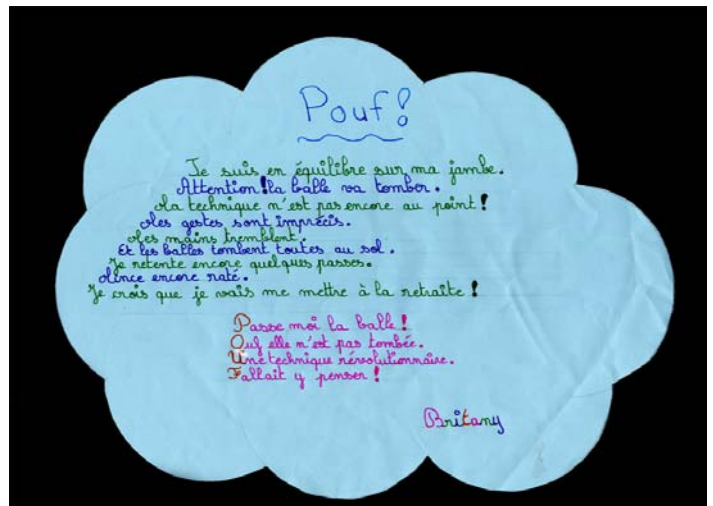 Pouf !
Je suis en équilibre sur ma jambe.
Attention ! la balle va tomber.
Ma technique n'est pas encore au point !
Mes gestes sont imprécis.
Mes mains tremblent.
Et les balles tombent toutes au sol.
Je retente encore quelques passes.
Mince encore raté.
Je crois que je vais me mettre à la retraite !
Passe moi la balle !
Ouf elle n'est pas tombée.
Une technique révolutionnaire.
Fallait y penser !
Britany